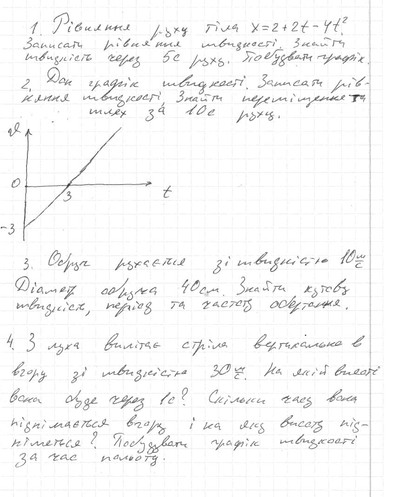 1. Рівняння руху тіла x=2+2t-4t².
Записати рівняння швидкості. Знайти
швидкість через 5с руху. Побудувати графік.
2. Дан графік швидкості. Записати рів-
няння швидкості. Знайти переміщення та
шлях за 10с руху.
v
0
3
t
-3
3. Обруч рухається зі швидкістю 10 м/с
Діаметр обруча 40см. Знайти кутову
швидкість, період та частоту обертання.
4. З лука вилітає стріла вертикально в
вгору зі швидкістю 30 м/с. На якій висоті
вона буде через 1с? Скільки часу вона
піднімається вгору і на яку висоту під-
німеться? Побудувати графік швидкості
за час польоту.